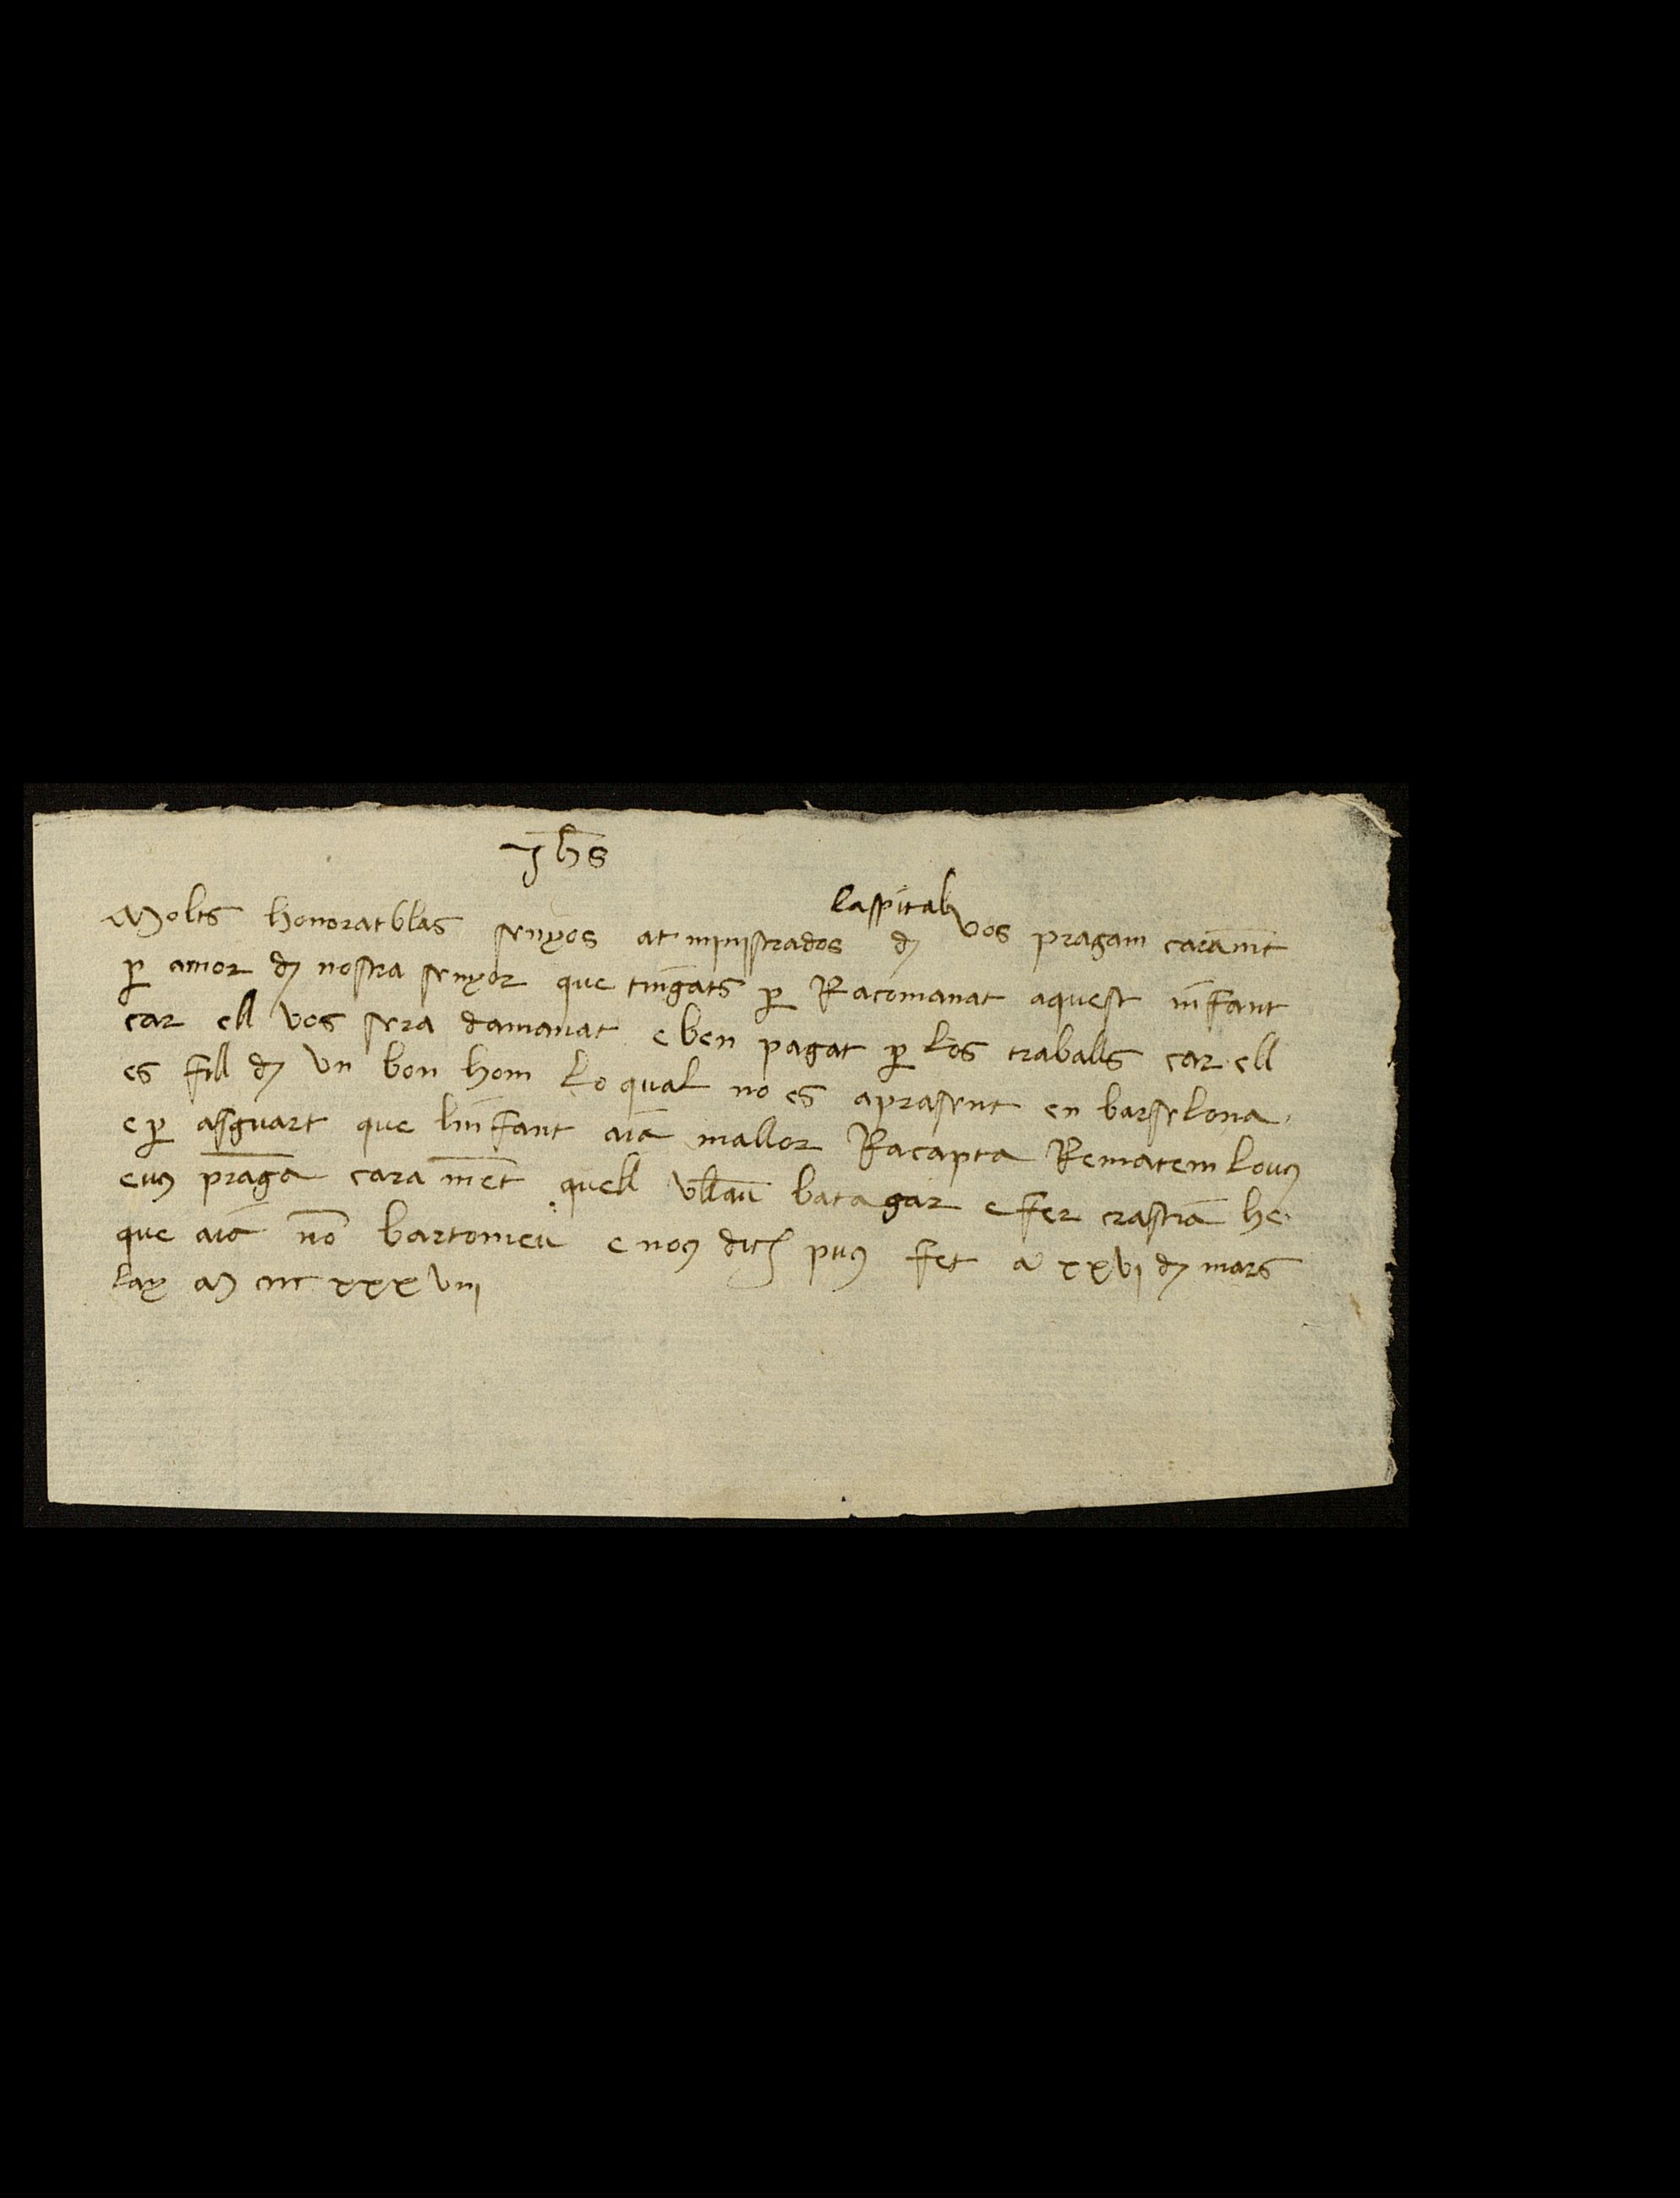 Jhs
Molts honoratblas senyos atministrados d laspital vos pragam caramēt
p amor d nostra senyor que tingats p Racomanat aquest infant
car ell vos sera damanat e ben pagat p los traballs car ell
es fill d un bon hom lo qual no es aprasent en barselona
e p asguart que linfant aia mallor Racapta Rematem lous
eus praga carament quell ullau batagar e fer crastia he
que aia nō bartomeu e nos dich pus fet a xxvi d mars
lay M cccc xxx viii